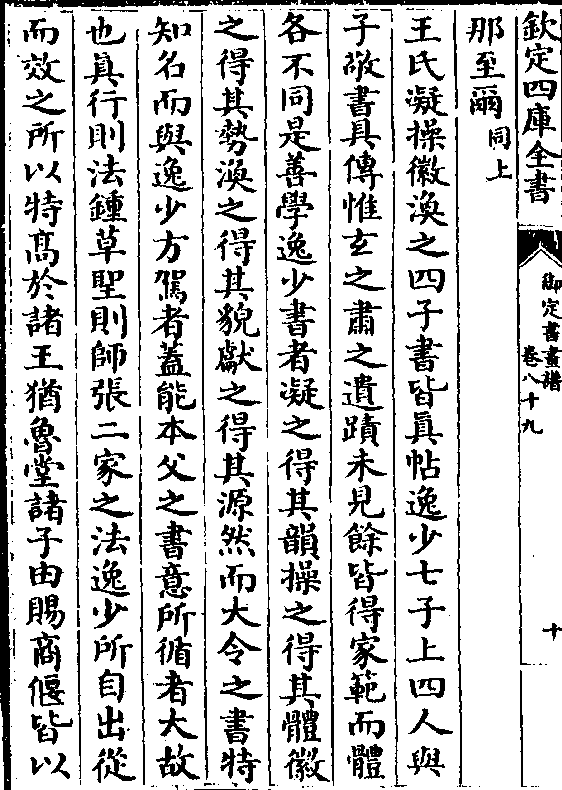 欽定四庫全書
御定書畫譜
卷八十九
十
那至爾同上
王氏凝操徽渙之四子書皆真帖逸少七子上四人與
子敬書具傳惟玄之肅之遺蹟未見餘皆得家範而體
各不同是善學逸少書者凝之得其韻操之得其體徽
之得其勢渙之得其貌獻之得其源然而大令之書特
知名而與逸少方駕者蓋能本父之書意所循者大故
也真行則法鍾草聖則師張二家之法逸少所自出從
而效之所以特髙於諸王猶魯堂諸子由賜商偃皆以